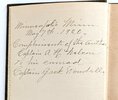 Minneapolis Minn
May 7th 1920.
Compliments of the Author
Captain A. W. Nelson
To his comrad
Captain Jack